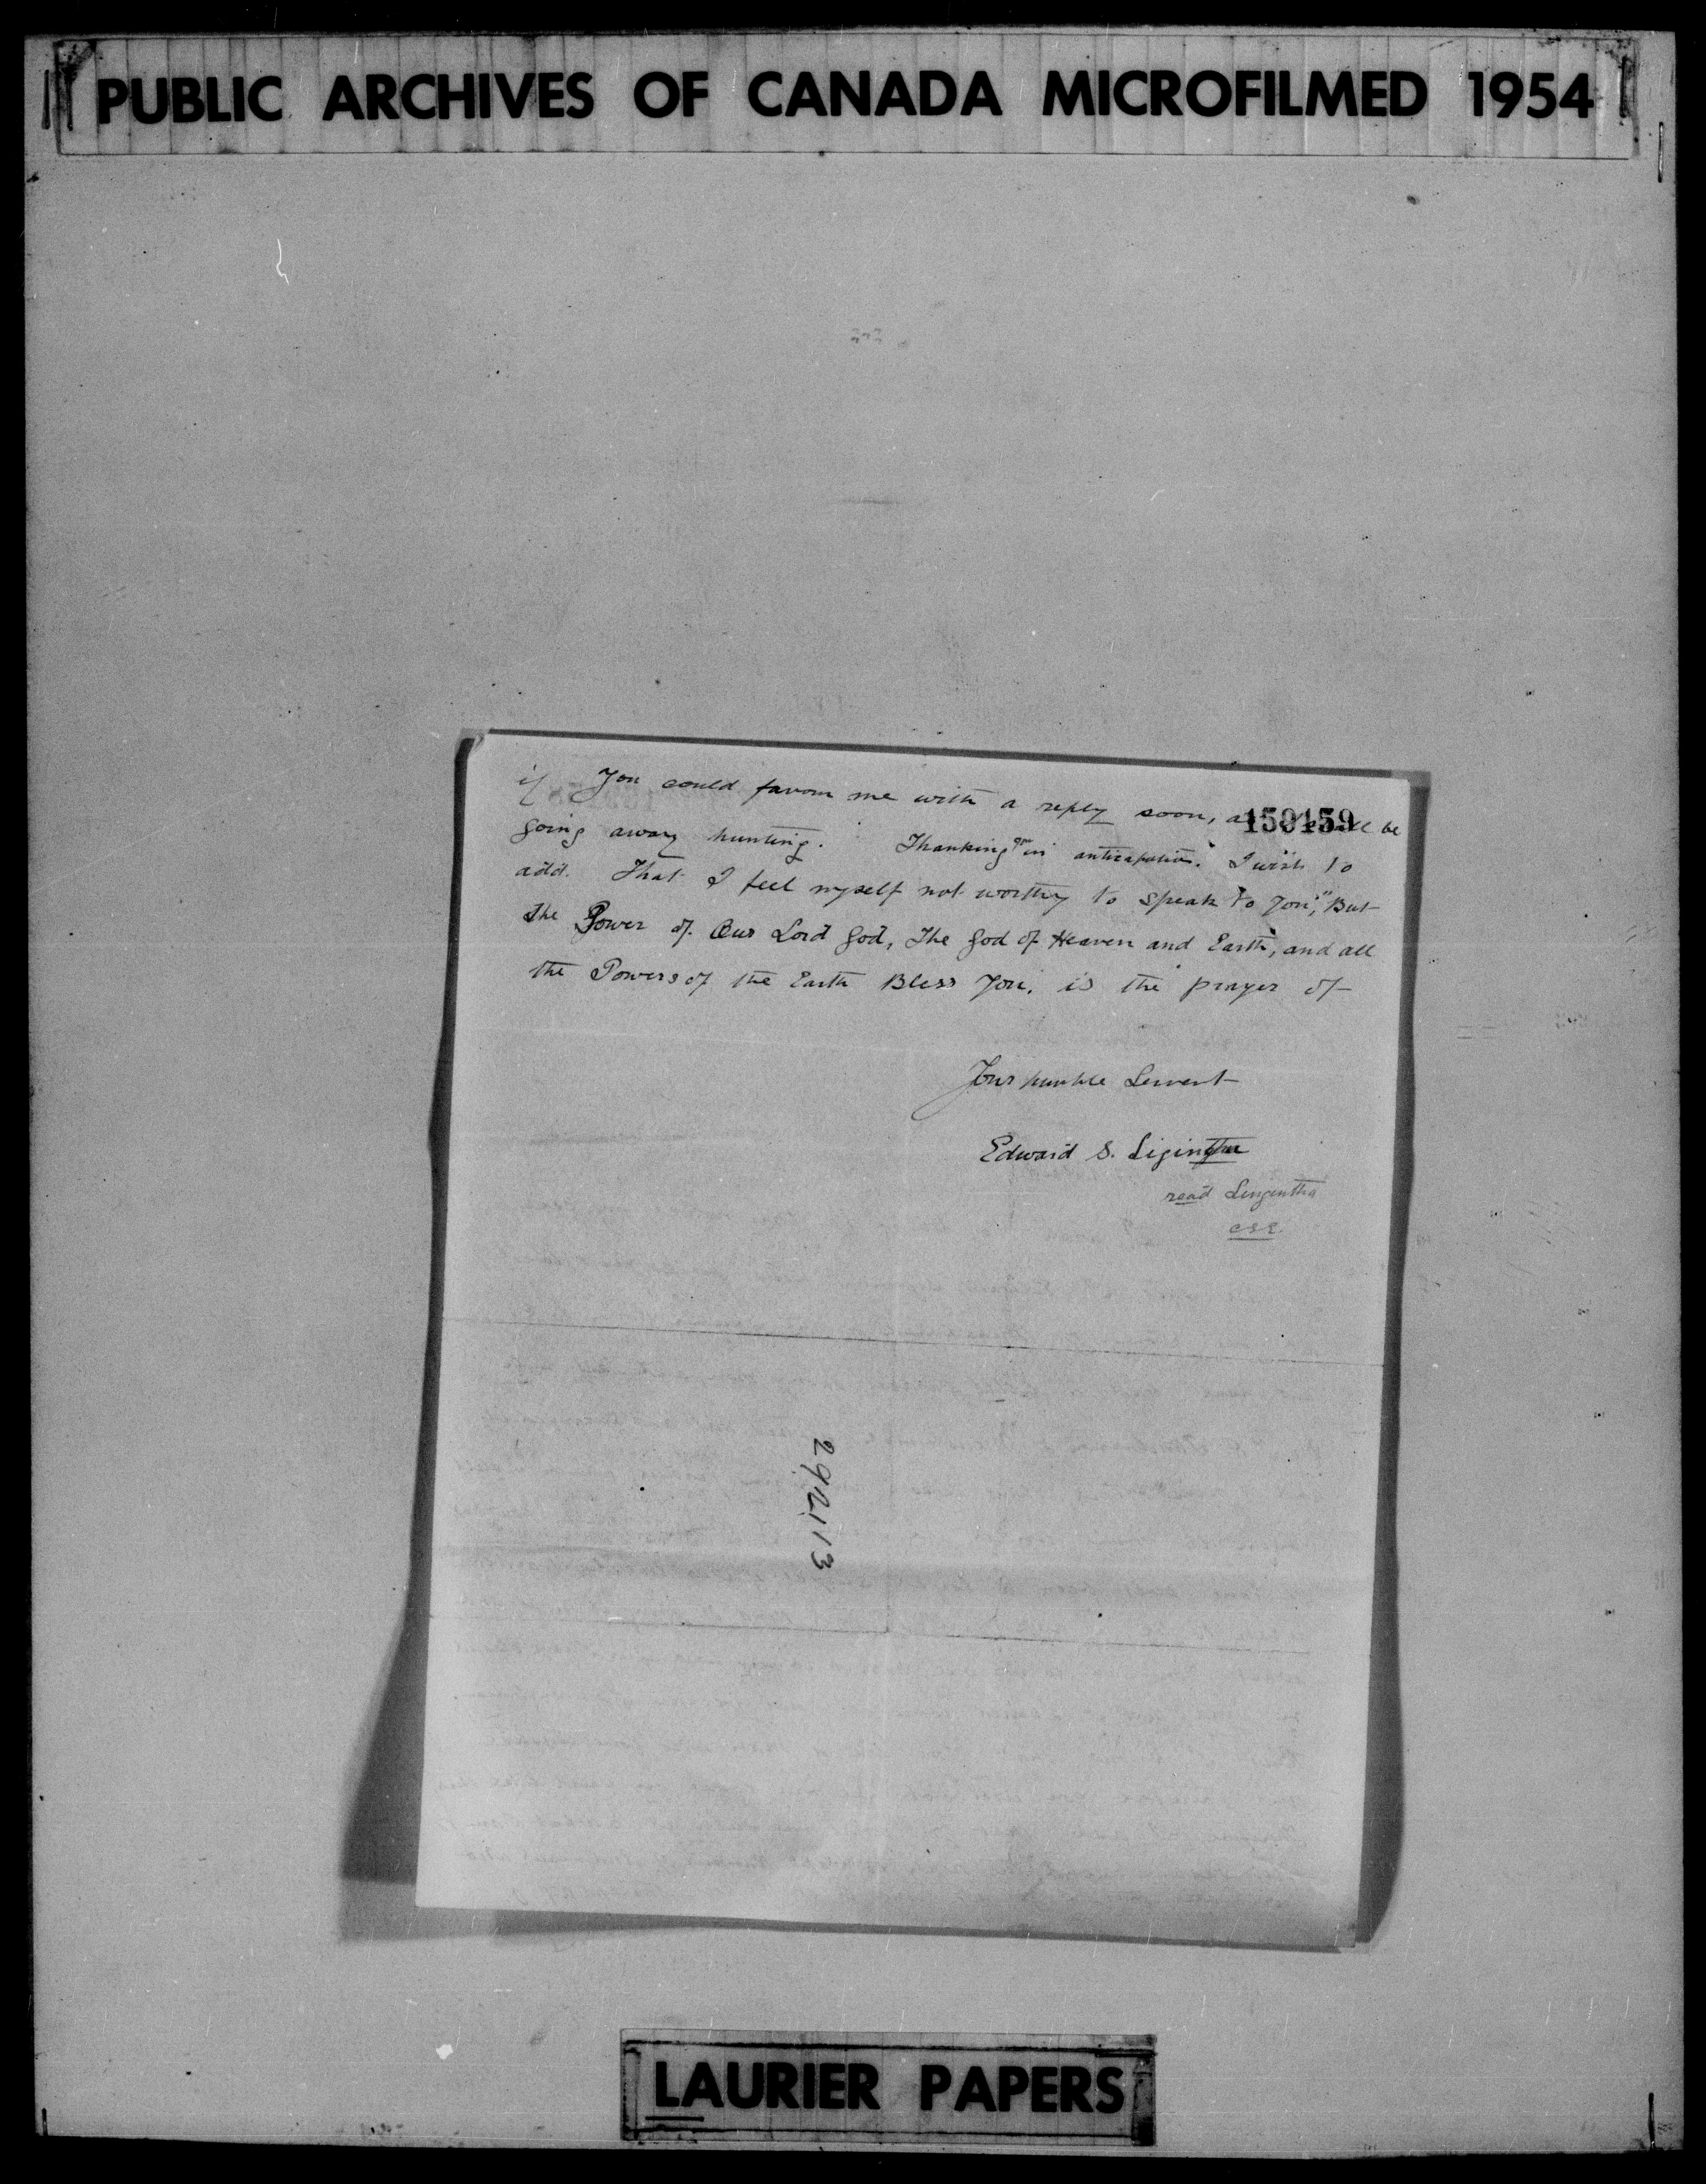 PUBLIC ARCHIVES OF CANADA MICROFILMED 1954
if You could favour me with a reply soon, as be
150159
going away hunting. Thanking you in anticipation. I wish to
add. That I feel myself not worthy to speak to You," But
the Power of Our Lord God, The God of Heaven and Earth, and all
the Powers of the Earth Bless You, is the prayer of
Your humble Servent
Edward S.
read
292113
LAURIER PAPERS